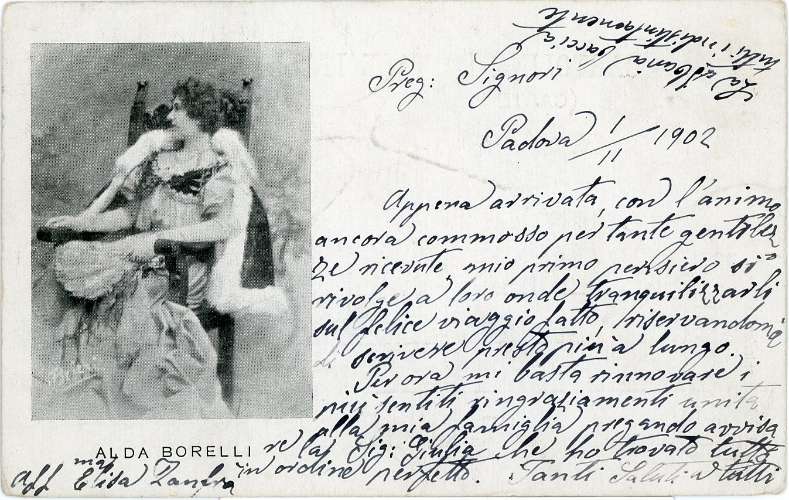 Preg: Signori
Padova 1/11 1902
Appena arrivata, con l'animo
ancora commosso per tante gentilez
ze ricevute, mio primo pensiero si
rivolge a loro onde tranquilizzarli
sul felice viaggio fatto, riservandomi
di scrivere presto più a lungo.
Per ora mi basta rinnovare i
più sentiti ringraziamenti unita
alla mia famiglia pregando avvisa
re la Sig: Giulia che ho trovato tutto
in ordine perfetto. Tanti Saluti a tutti
Aff.ma Elisa
La Maria baccia
tutti indistintamente
ALDA BORELLI